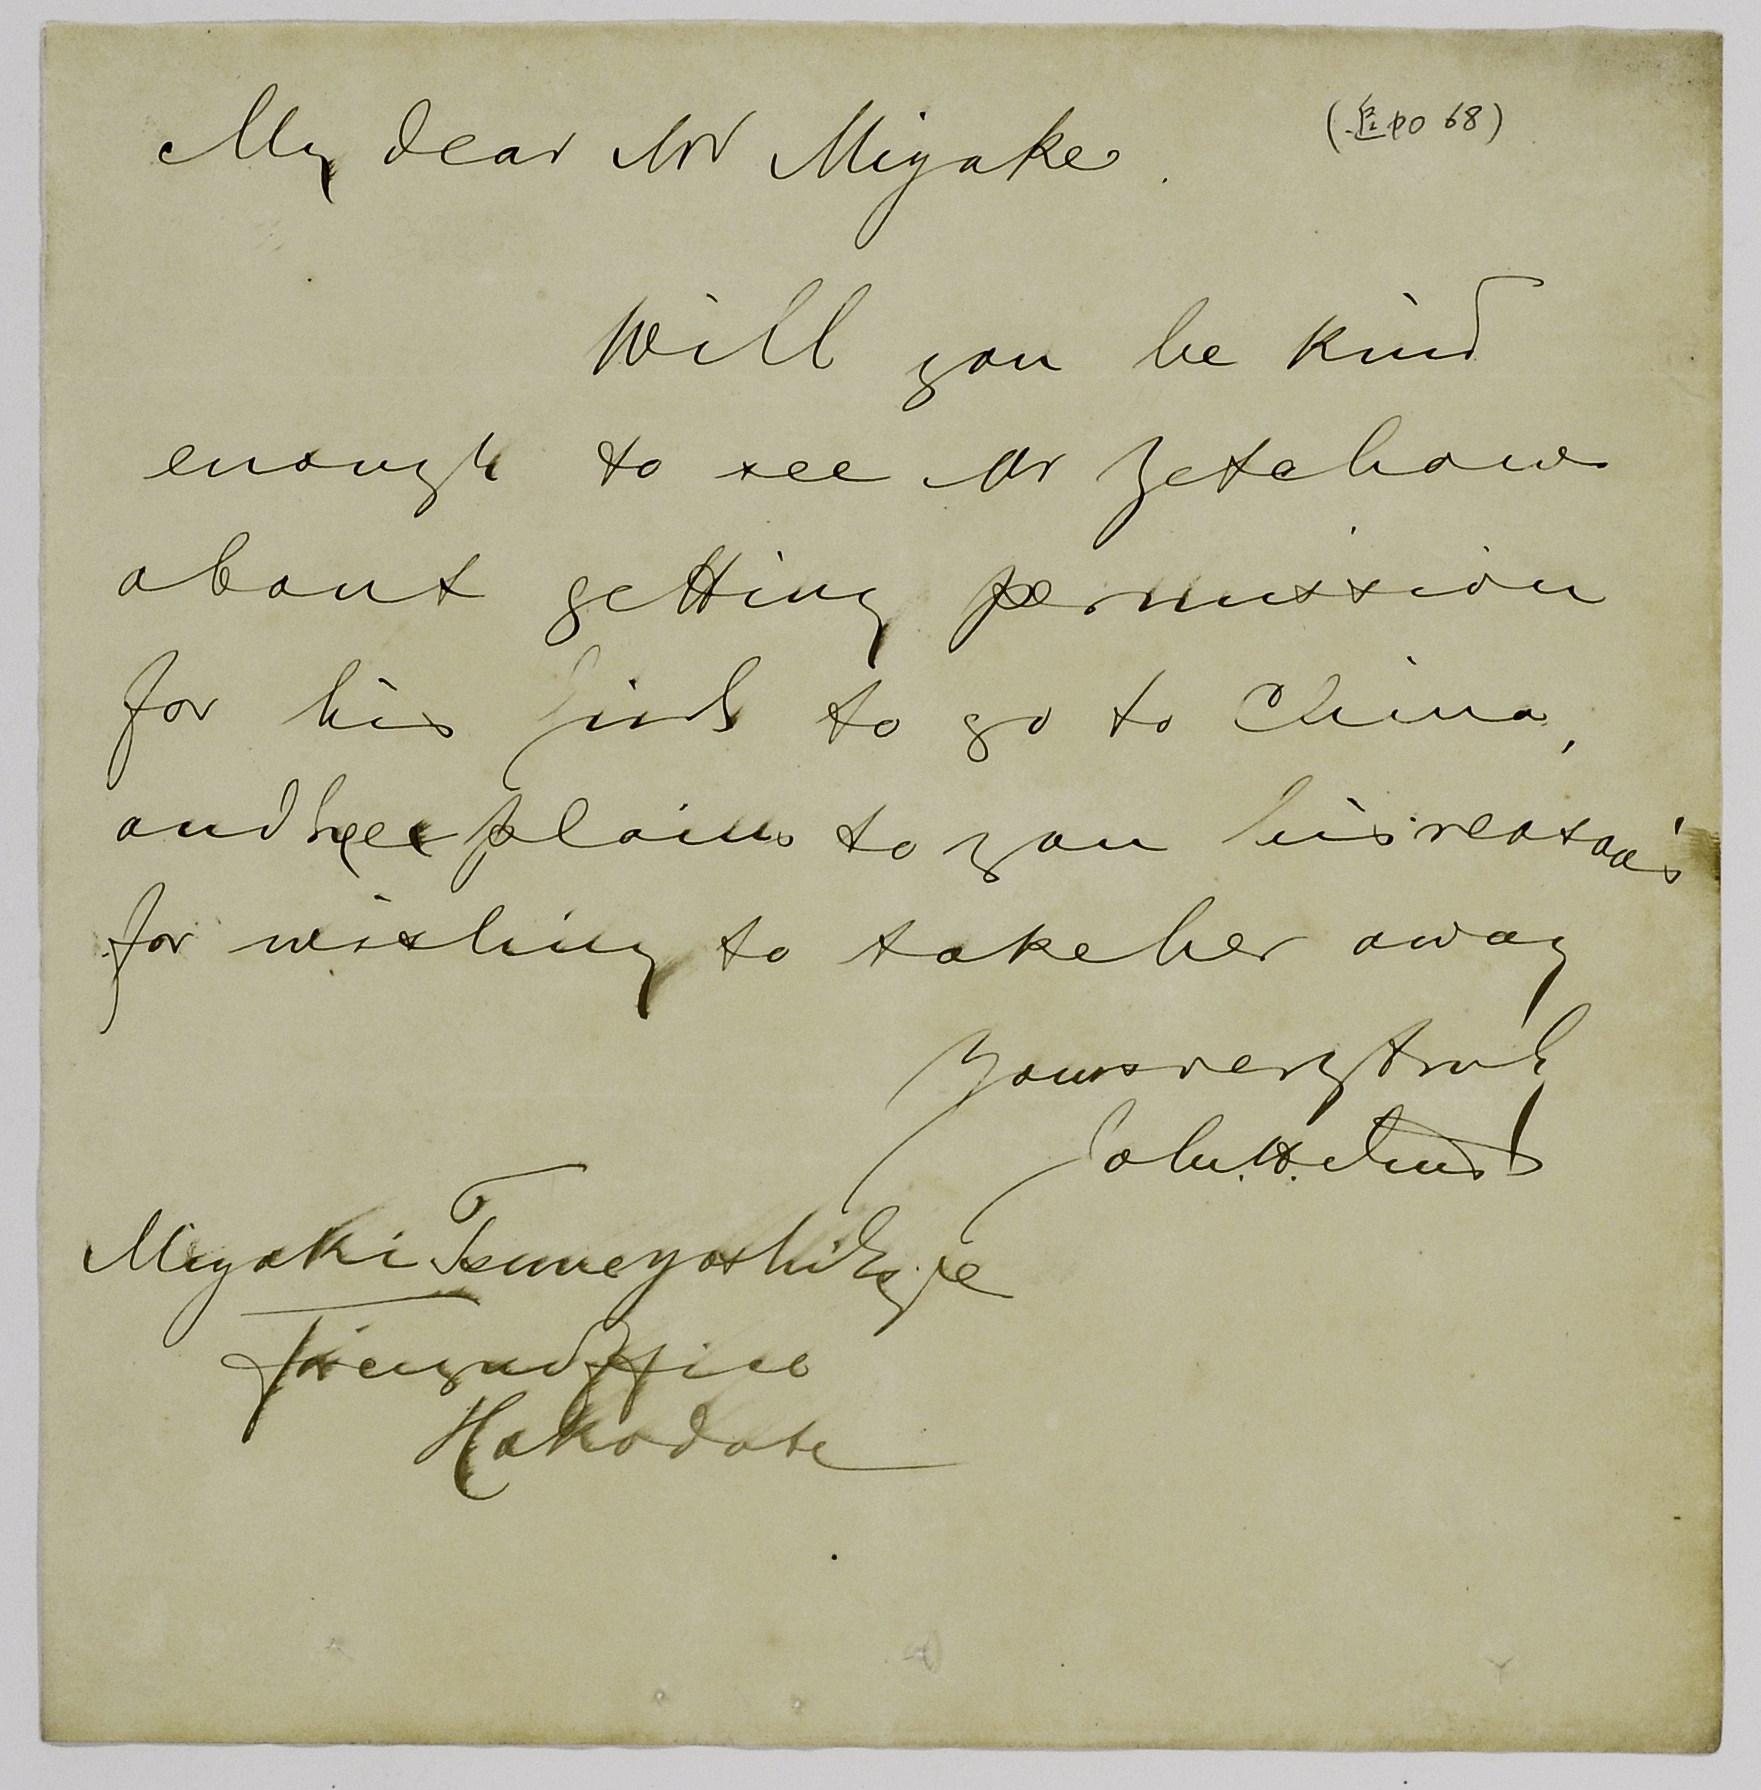 My dear Mr Miyake.
Will you be kind
enough to see Mr
about getting permission
for his girl to go to China,
and he explains to you his reasons
for wishing to take her away
Yours very truly
John H.
Miyaki Tsuneyoshi
Foreign Office
Hakodate